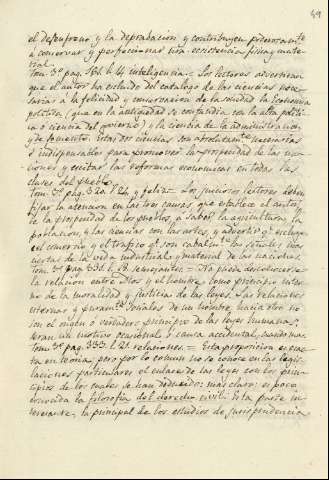 49
el desenfreno y la depravacion y contribuyen poderosam.te
á conservar y perfeccionar una existencia fisica y mate-
rial.
Tom. 3º pag. 561 l. 14 inteligencia = Los lectores advertiran
que el autor ha escluido del catalogo de las ciencias nece-
sarias á la felicidad y conservacion de la sociedad la Economia
politica (que en la antiguedad se confundia con la alta politi-
ca ó ciencia del govierno) y la ciencia de la administracion
y de fomento: estas dos ciencias son absolutam.te necesarias
é indispensables para promover la prosperidad de las na-
ciones y evitar las reformas economicas en todas las
clases del pueblo.
Tom. 3º pag. 320 l. 24 y feliz = Los juiciosos lectores deben
fijar la atencion en las tres causas que establece el autor,
de la prosperidad de los pueblos, á saber, la agricultura, la
poblacion, y las ciencias con las artes, y advertir q.e escluye
el comercio y el trafico q.e son cabalm.te las señales mas
ciertas de la vida industrial y material de las naciones.
Tom. 3º pag. 331 l. 18 semejantes = No puede desconocerse
la relacion entre Dios y el hombre, como principio inter-
no de la moralidad y justicia de las leyes. Las relaciones
externas y puram.te sociales de un hombre hacia otro no
son el origen ó verdadero principio de las leyes humanas;
seran un motivo ocasional ó causa accidental, cuando mas.
Tom. 3º pag. 333 l. 21 relaciones = Esta proposicion es exac-
ta en teoria, pero por lo comun no se conoce en las legis-
laciones particulares el enlace de las leyes con los prin-
cipios de los cuales se han deducido: mas claro: es poco
conocida la filosofia del derecho civil. Esta parte in-
teresante, la principal de los estudios de jurisprudencia